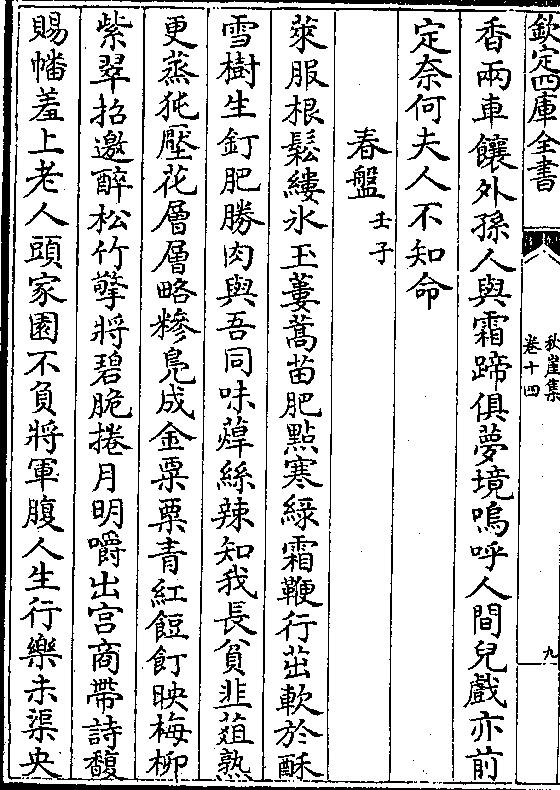 欽定四庫全書
秋崖集
卷十四
九
香兩車饟外孫人與霜蹄俱夢境嗚呼人間兒戲亦前
定奈何夫人不知命
春盤壬子
萊服根鬆縷氷玉蔞蒿苗肥點寒緑霜鞭行茁軟於酥
雪樹生釘肥勝肉與吾同味蔊絲辣知我長貧韭葅熟
更蒸㹠壓花層層略糝鳬成金粟粟青紅餖飣映梅柳
紫翠招邀醉松竹擎將碧脆捲月明嚼出宫商帶詩馥
賜幡羞上老人頭家園不負將軍腹人生行樂未渠央